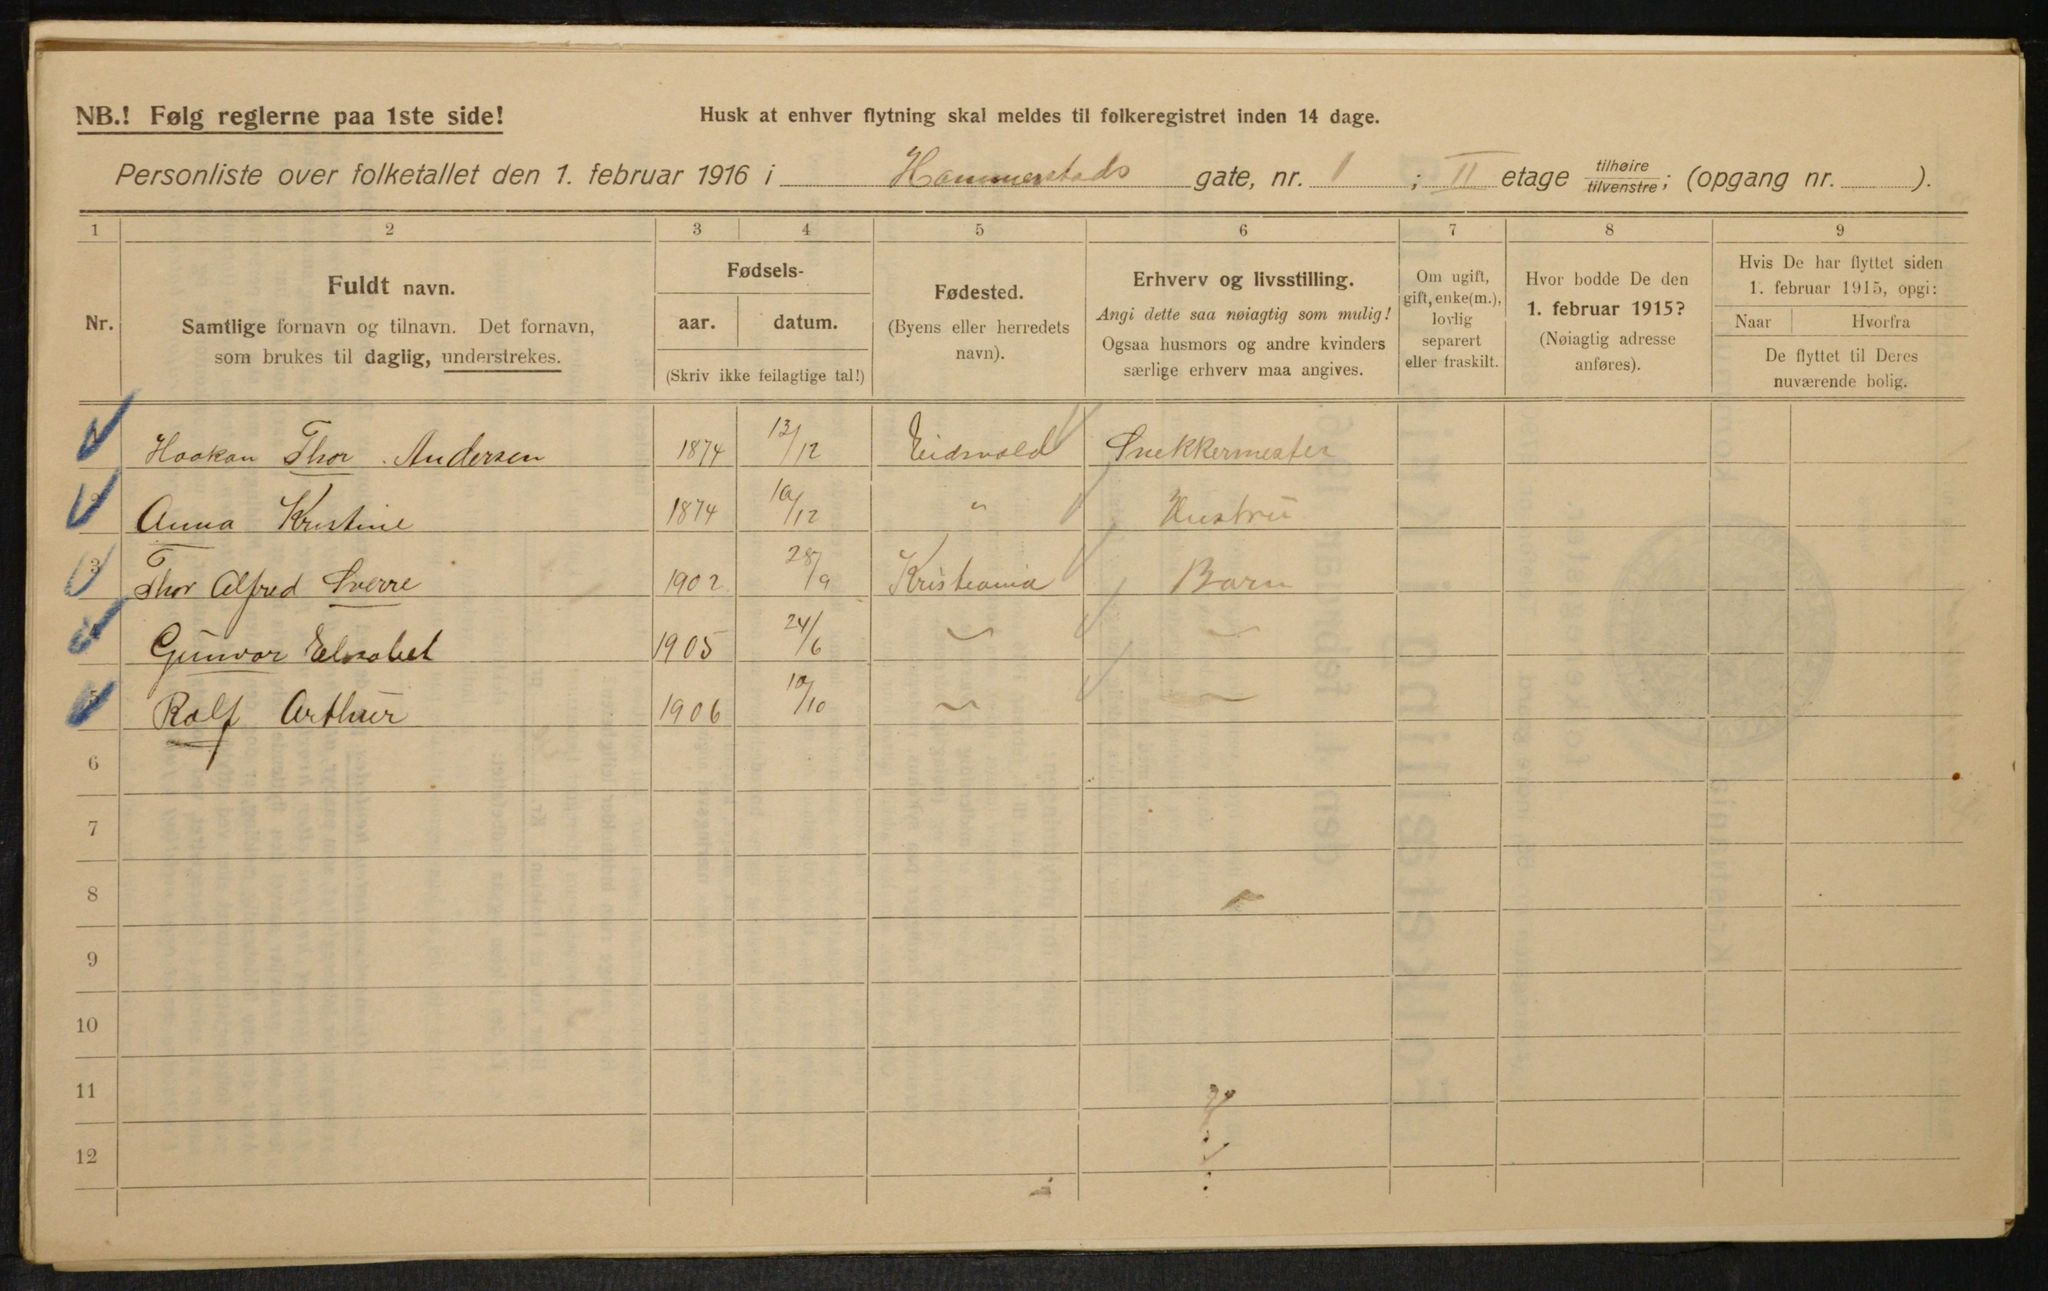 NB.! Følg reglerne paa 1ste side!
Husk at enhver flytning skal meldes til folkeregistret inden 14 dage.
Personliste over folketallet den 1. februar 1916 i Hammerstads gate, nr. 1 ; II etage tilhøire/tilvenstre; (opgang nr. ).
1 2 3 4 5 6 7 8 9
Nr.
Fuldt navn.
Samtlige fornavn og tilnavn. Det fornavn,
som brukes til daglig, understrekes.
Fødsels-
aar. datum.
(Skriv ikke feilagtige tal!)
Fødested.
(Byens eller herredets
navn).
Erhverv og livsstilling.
Angi dette saa nøiagtig som mulig!
Ogsaa husmors og andre kvinders
særlige erhverv maa angives.
Om ugift,
gift, enke(m.),
lovlig
separert
eller fraskilt.
Hvor bodde De den
1. februar 1915?
(Nøiagtig adresse
anføres).
Hvis De har flyttet siden
1. februar 1915, opgi:
Naar Hvorfra
De flyttet til Deres
nuværende bolig.
Haakan Thor Andersen 1874 13/12 Eidsvold Snekkermester
2 Anna Kristine 1874 10/12 " Hustru
3 Thor Alfred Sverre 1902 28/9 Kristiania Barn
4 Gunvor Elisabet 1905 24/6 " "
5 Rolf Arthur 1906 10/10 " "
6
7
8
9
10
11
12